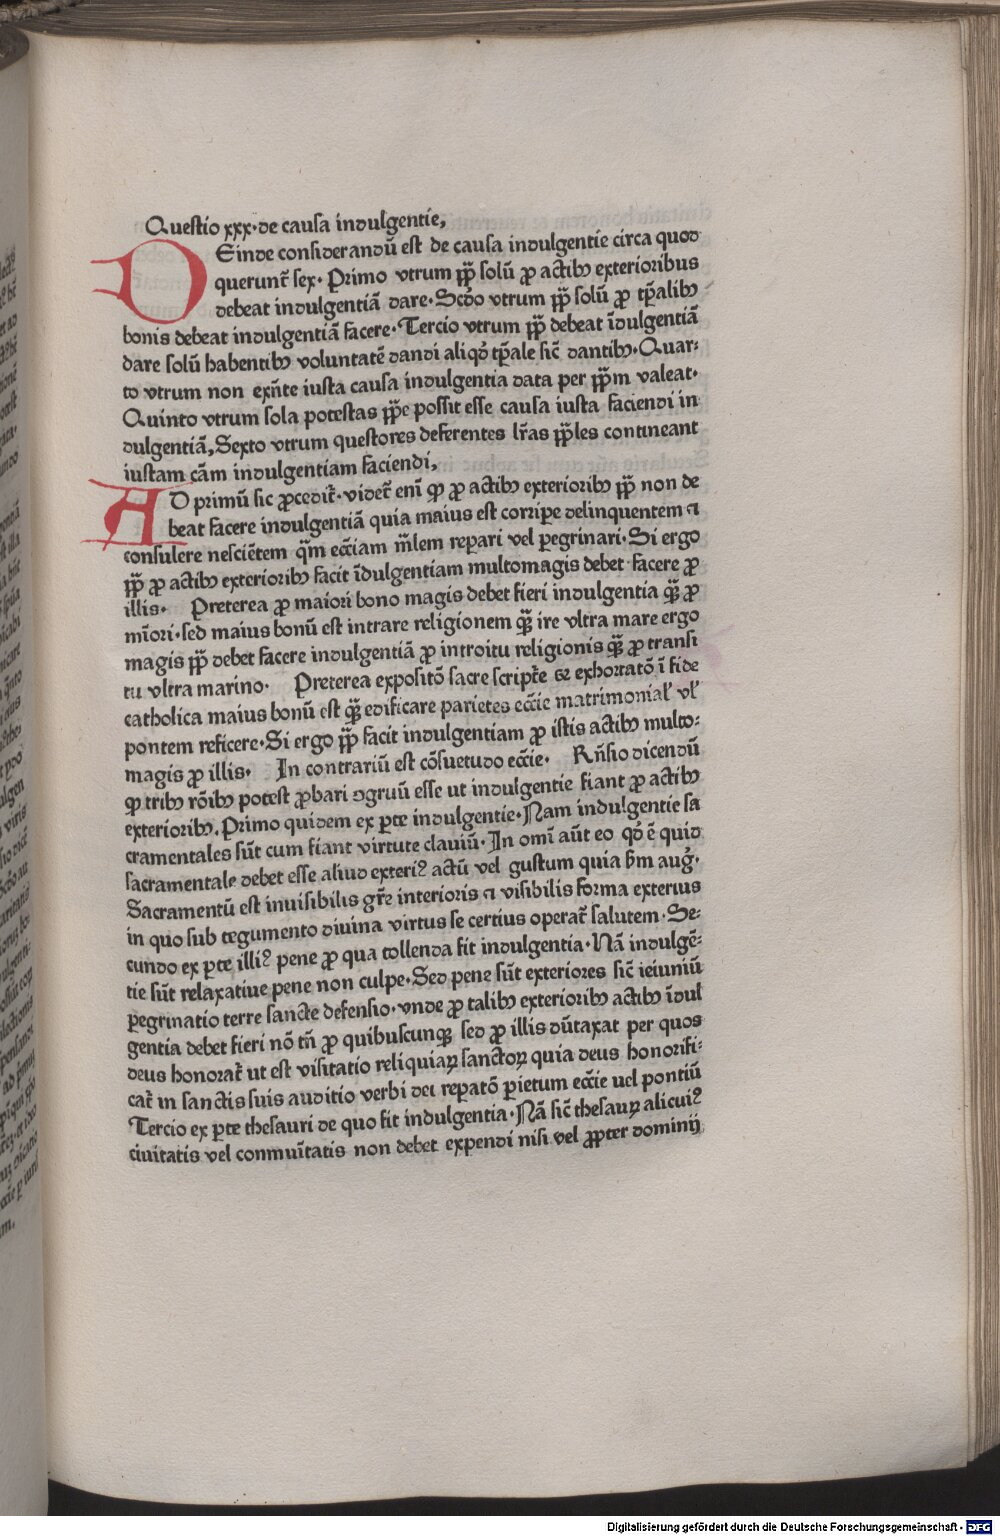 Questio xxx·de causa indulgentie,
DEinde considerandū est de causa indulgentie circa quod
querunt̃ sex· Primo vtrum pp̃ solū ꝓ actibꝫ exterioribus
debeat indulgentiā dare·Scďo vtrum pp̃ solū ꝓ tp̃alibꝫ
bonis debeat indulgentiā facere·Tercio vtrum pp̃ debeat īdulgentiā
dare solū habentibꝫ voluntatē dandi aliqď tp̃ale sic̃ dantibꝫ·Quar:
to vtrum non exñte iusta causa indulgentia data per pp̃m valeat·
Quinto vtrum sola potestas pp̃e possit esse causa iusta faciendi in
dulgentiā,Sexto vtrum questores deferentes lr̃as pp̃les contineant
iustam cām indulgentiam faciendi,
AD primū sic ꝓcedit̃·videt̃ eni̅ ꝙ ꝓ actibꝫ exterioribꝫ pp̃ non de
beat facere indulgentiā quia maius est corripe delinquentem ⁊
consulere nesciētem q̃m ecc̃iam m̃lem repari vel ꝑegrinari·Si ergo
pp̃ ꝓ actibꝫ exterioribꝫ facit īdulgentiam multomagis debet facere ꝓ
illis· Preterea ꝓ maiori bono magis debet fieri indulgentia q̃ꝫ ꝓ
mi̅ori·sed maius bonū est intrare religionem q̃ꝫ ire vltra mare ergo
magis pp̃ debet facere indulgentiā ꝓ introitu religionis q̃ꝫ ꝓ transi
tu vltra marino· Preterea expositō sacre scriptr̃e ⁊ exhortatō ī fide
catholica maius bonū est q̃ꝫ edificare parietes ecc̃ie matrimoniaƚ vƚ
pontem reficere·Si ergo pp̃ facit indulgentiam ꝓ istis actibꝫ multo:
magis ꝓ illis· In contrariū est cōsuetudo ecc̃ie· Rñsio dicendū
ꝙ tribꝫ rōibꝫ potest ꝓbari ꝯgruū esse ut indulgentie fiant ꝓ actibꝫ
exterioribꝫ.Primo quidem ex ꝑte indulgentie·Nam indulgentie sa
cramentales sūt cum fiant virtute clauiū·In omi̅ aūt eo qď ē quid
sacramentale debet esse aliud exteriꝰ actū vel gustum quia ẜm aug̃·
Sacramentū est inuisibilis gr̃e interioris ⁊ visibilis forma exterius
in quo sub tegumento diuina virtus se certius operat̃ salutem·Se:
cundo ex ꝑte illiꝰ pene ꝓ qua tollenda fit indulgentia·Nā indulgē:
tie sūt relaxatiue pene non culpe·Sed pene sūt exteriores sic̃ ieiuniū
ꝑegrinatio terre sancte defensio·vnde ꝓ talibꝫ exterioribꝫ actibꝫ īdul
gentia debet fieri nō tñ ꝓ quibuscunqꝫ sed ꝓ illis dūtaxat per quos
deus honorat̃ ut est visitatio reliquiaꝝ sanctoꝝ quia deus honorifi:
cat̃ in sanctis suis auditio verbi dei repatō ꝑietum ecc̃ie uel pontiū
Tercio ex ꝑte thesauri de quo fit indulgentia·Nā sic̃ thesauꝝ alicuiꝰ
ciuitatis vel conmui̅tatis non debet expendi nisi vel ꝓpter dominij
Digitalisierung gefördert durch die Deutsche Forschungsgemeinschaft - DFG